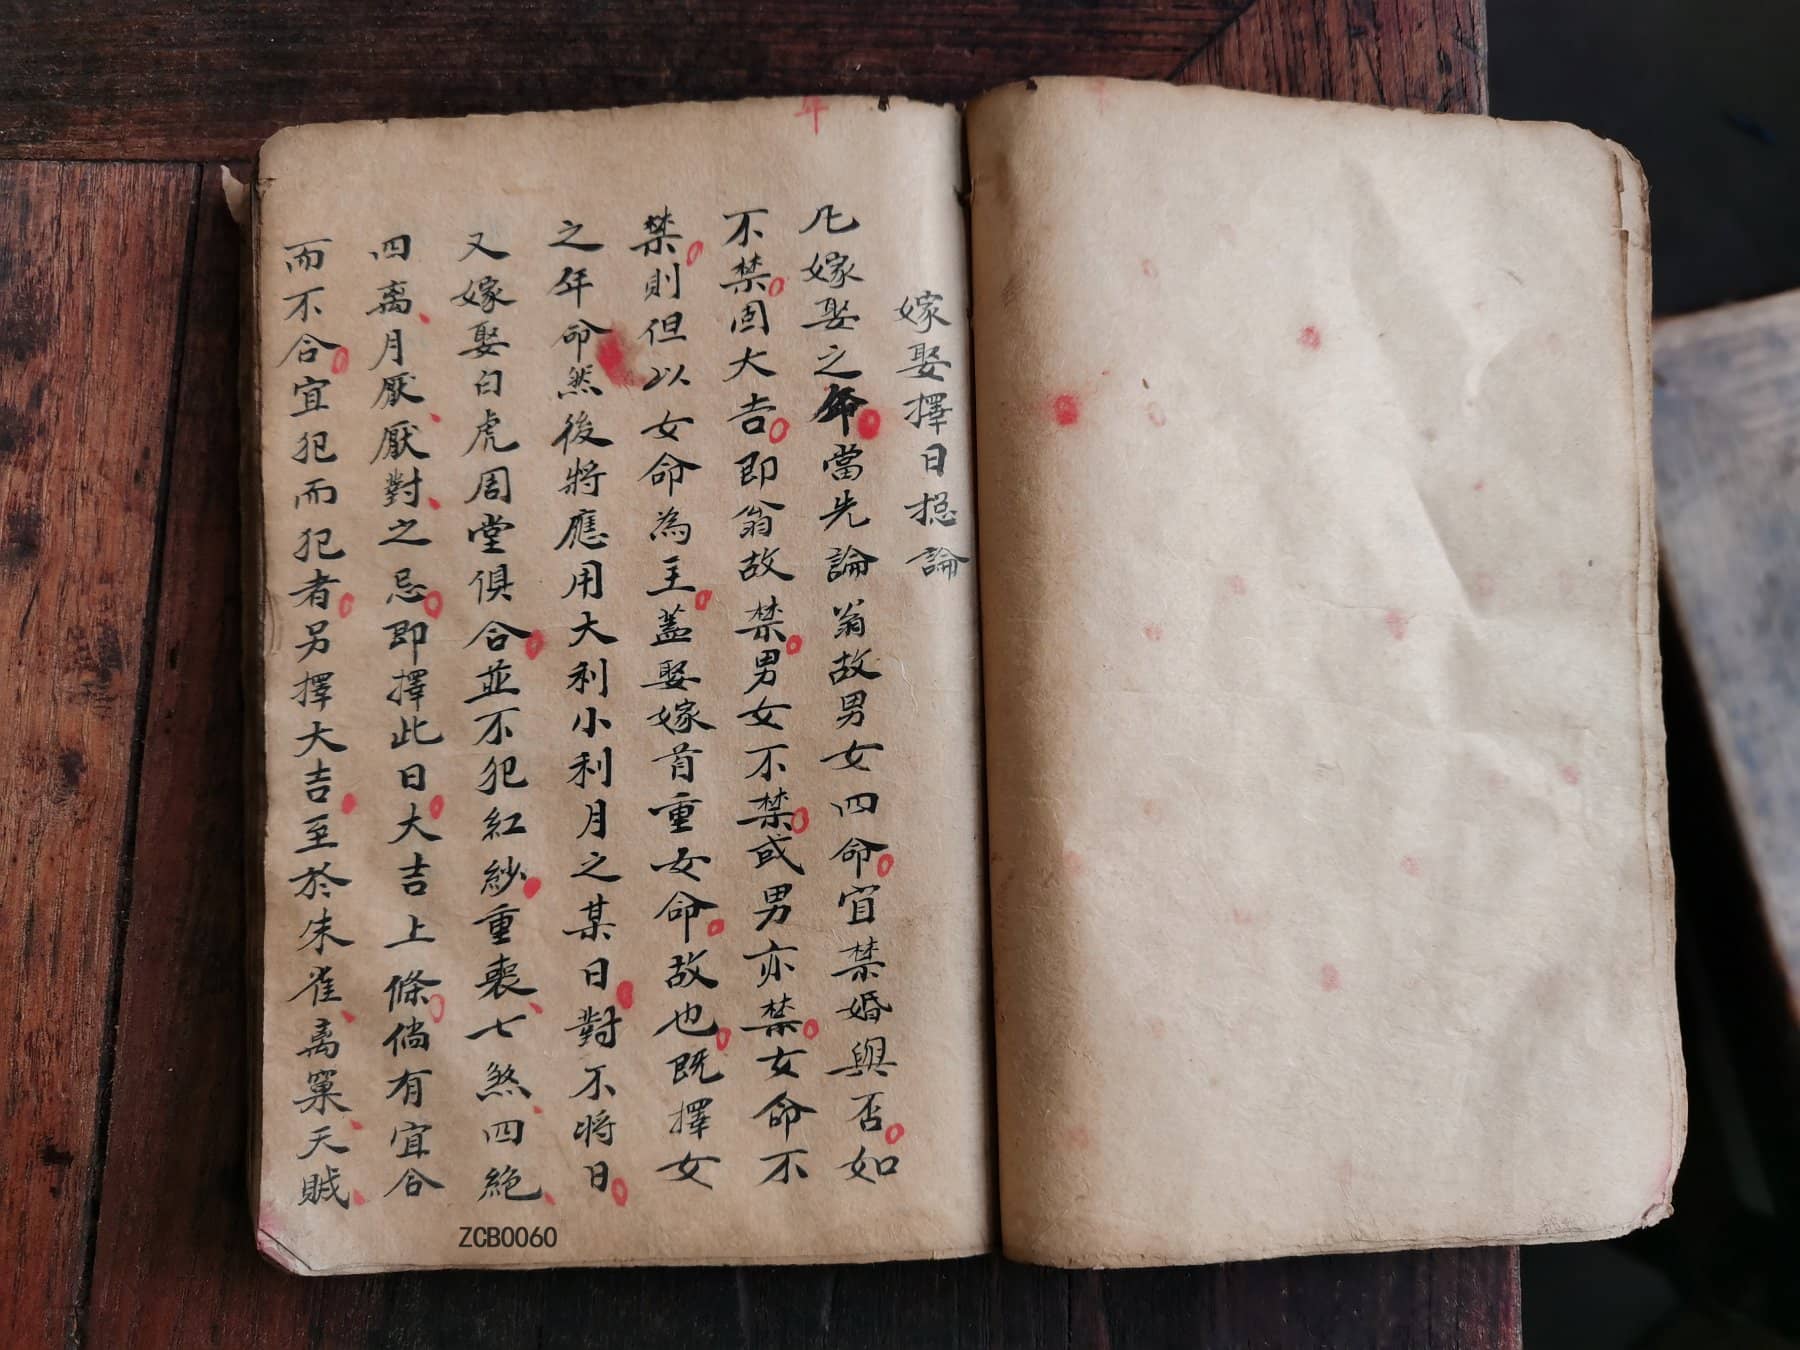 嫁娶擇日捴論
凡嫁娶之命當先論翁故男女四命宜禁婚與否如
不禁固大吉即翁故禁男女不禁或男亦禁女命不
禁則但以女命為主蓋娶嫁首重女命故也既擇女
之年命然後將應用大利小利月之某日對不將日
又嫁娶白虎周堂俱合並不犯紅紗重喪七煞四絕
四离月厭厭對之忌即擇此日大吉上條倘有宜合
而不合宜犯而犯者另擇大吉至於朱雀离窠天賊
年
ZCB0060